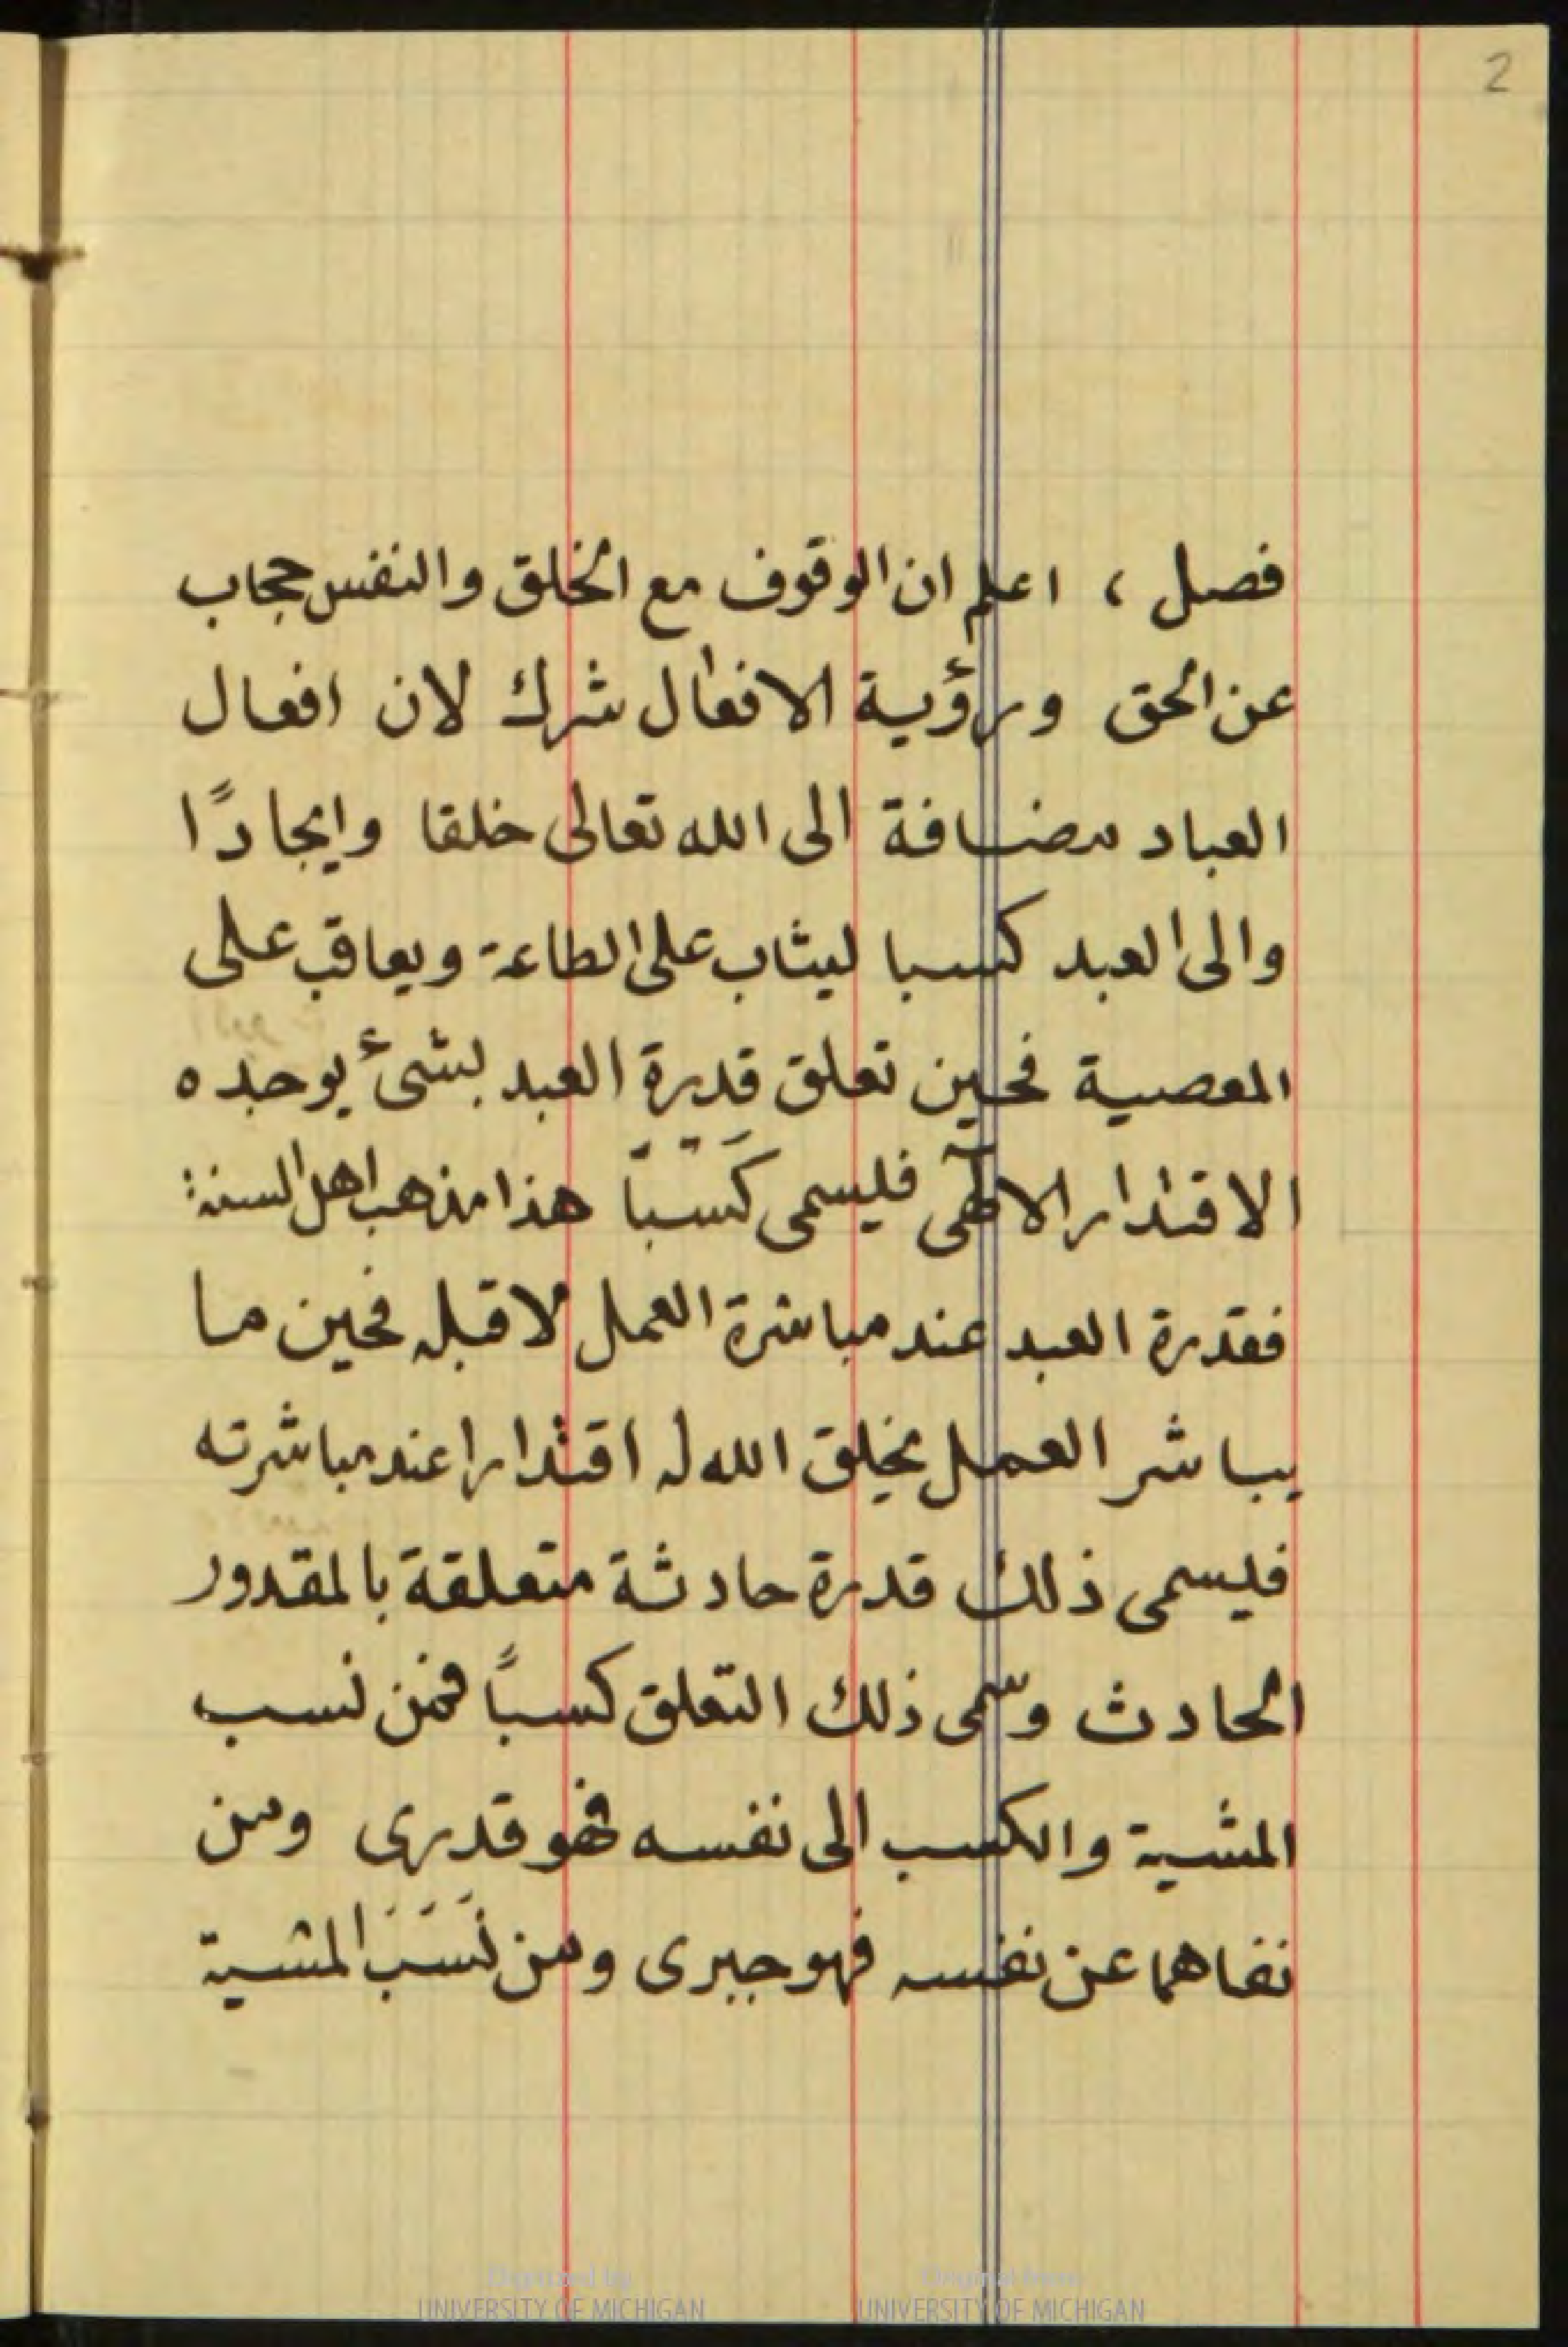 2
فصل ، اعلم ان الوقوف مع الخلق والنفس حجاب
عن الحق ورؤية الافعال شرك لان افعال
العباد مضافة الى الله تعالى خلقا وايجادًا
والى العبد كسبا ليثاب على الطاعة ويعاقب على
المعصية فحين تعلق قدرة العبد بشئ يوجده
الاقتدار الالهى فليسمى كَسْبًا هذا مذهب اهل السنة
فقدرة العبد عند مباشرة العمل لا قبله فحين ما
يباشر العمل يخلق الله له اقتدارا عند مباشرته
فليسمى ذلك قدرة حادثة متعلقة بالمقدور
الحادث وسمى ذلك التعلق كسبًا فمن نسب
المشية والكسب الى نفسه فهو قدرى ومن
نفاهما عن نفسه فهو جبرى ومن نَسَبَ المشية
Digitized by
UNIVERSITY OF MICHIGAN
Original from
UNIVERSITY OF MICHIGAN